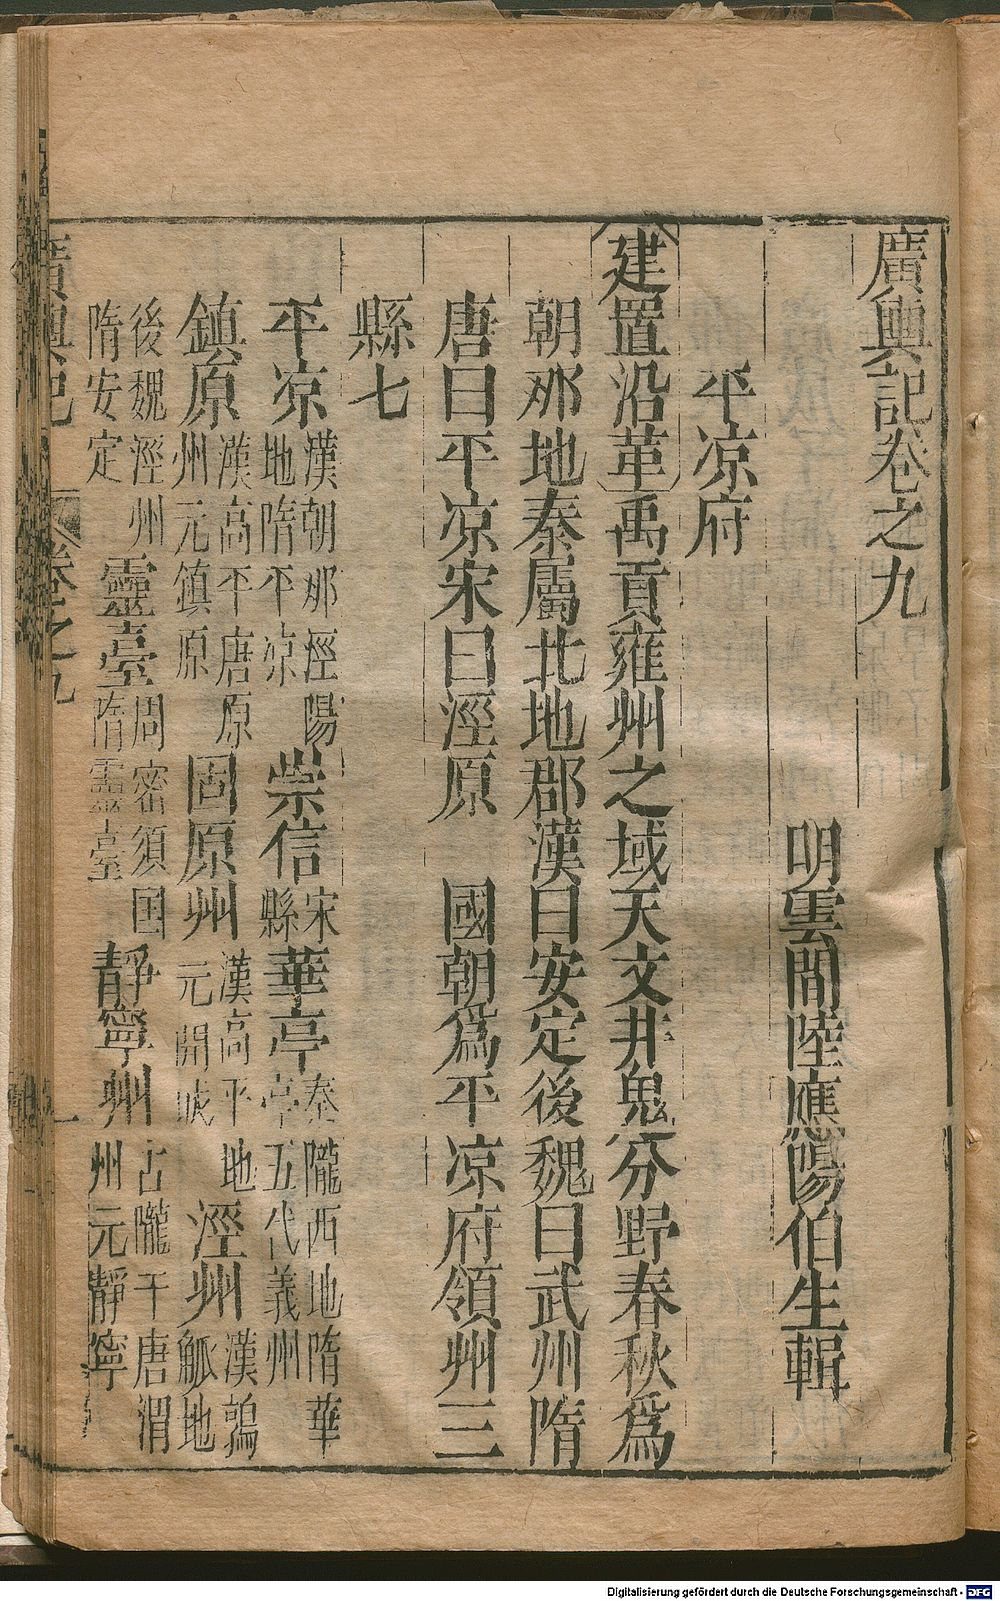 廣輿記卷之九
明雲間陸應陽伯生輯
平凉府
建置沿革禹貢雍州之域天文井鬼分野春秋爲
朝那地秦屬北地郡漢曰安定後魏曰武州隋
唐曰平凉宋曰涇原　國朝爲平凉府領州三
縣七
平凉漢朝那涇陽地隋平凉　崇信宋縣　華亭秦隴西地隋華亭五代義州
鎮原漢高平唐原州元鎮原　固原州漢高平地元開成　涇州漢鶉觚地
後魏涇州隋安定　靈臺周密須国隋靈臺　靜寧州古隴干唐渭州元靜寧
廣輿記　卷之九　一
Digitalisierung gefördert durch die Deutsche Forschungsgemeinschaft - DFG